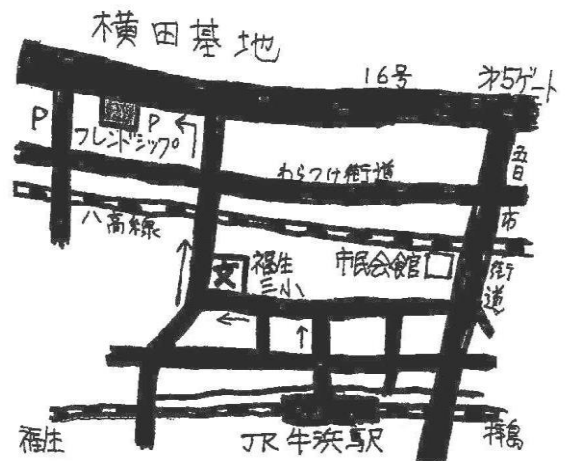 横田基地
16号
第5ゲート
P
P
フレンドシップ
五日市街道
わらつけ街道
八高線
文
福生三小
市民会館
福生
JR牛浜駅
拝島